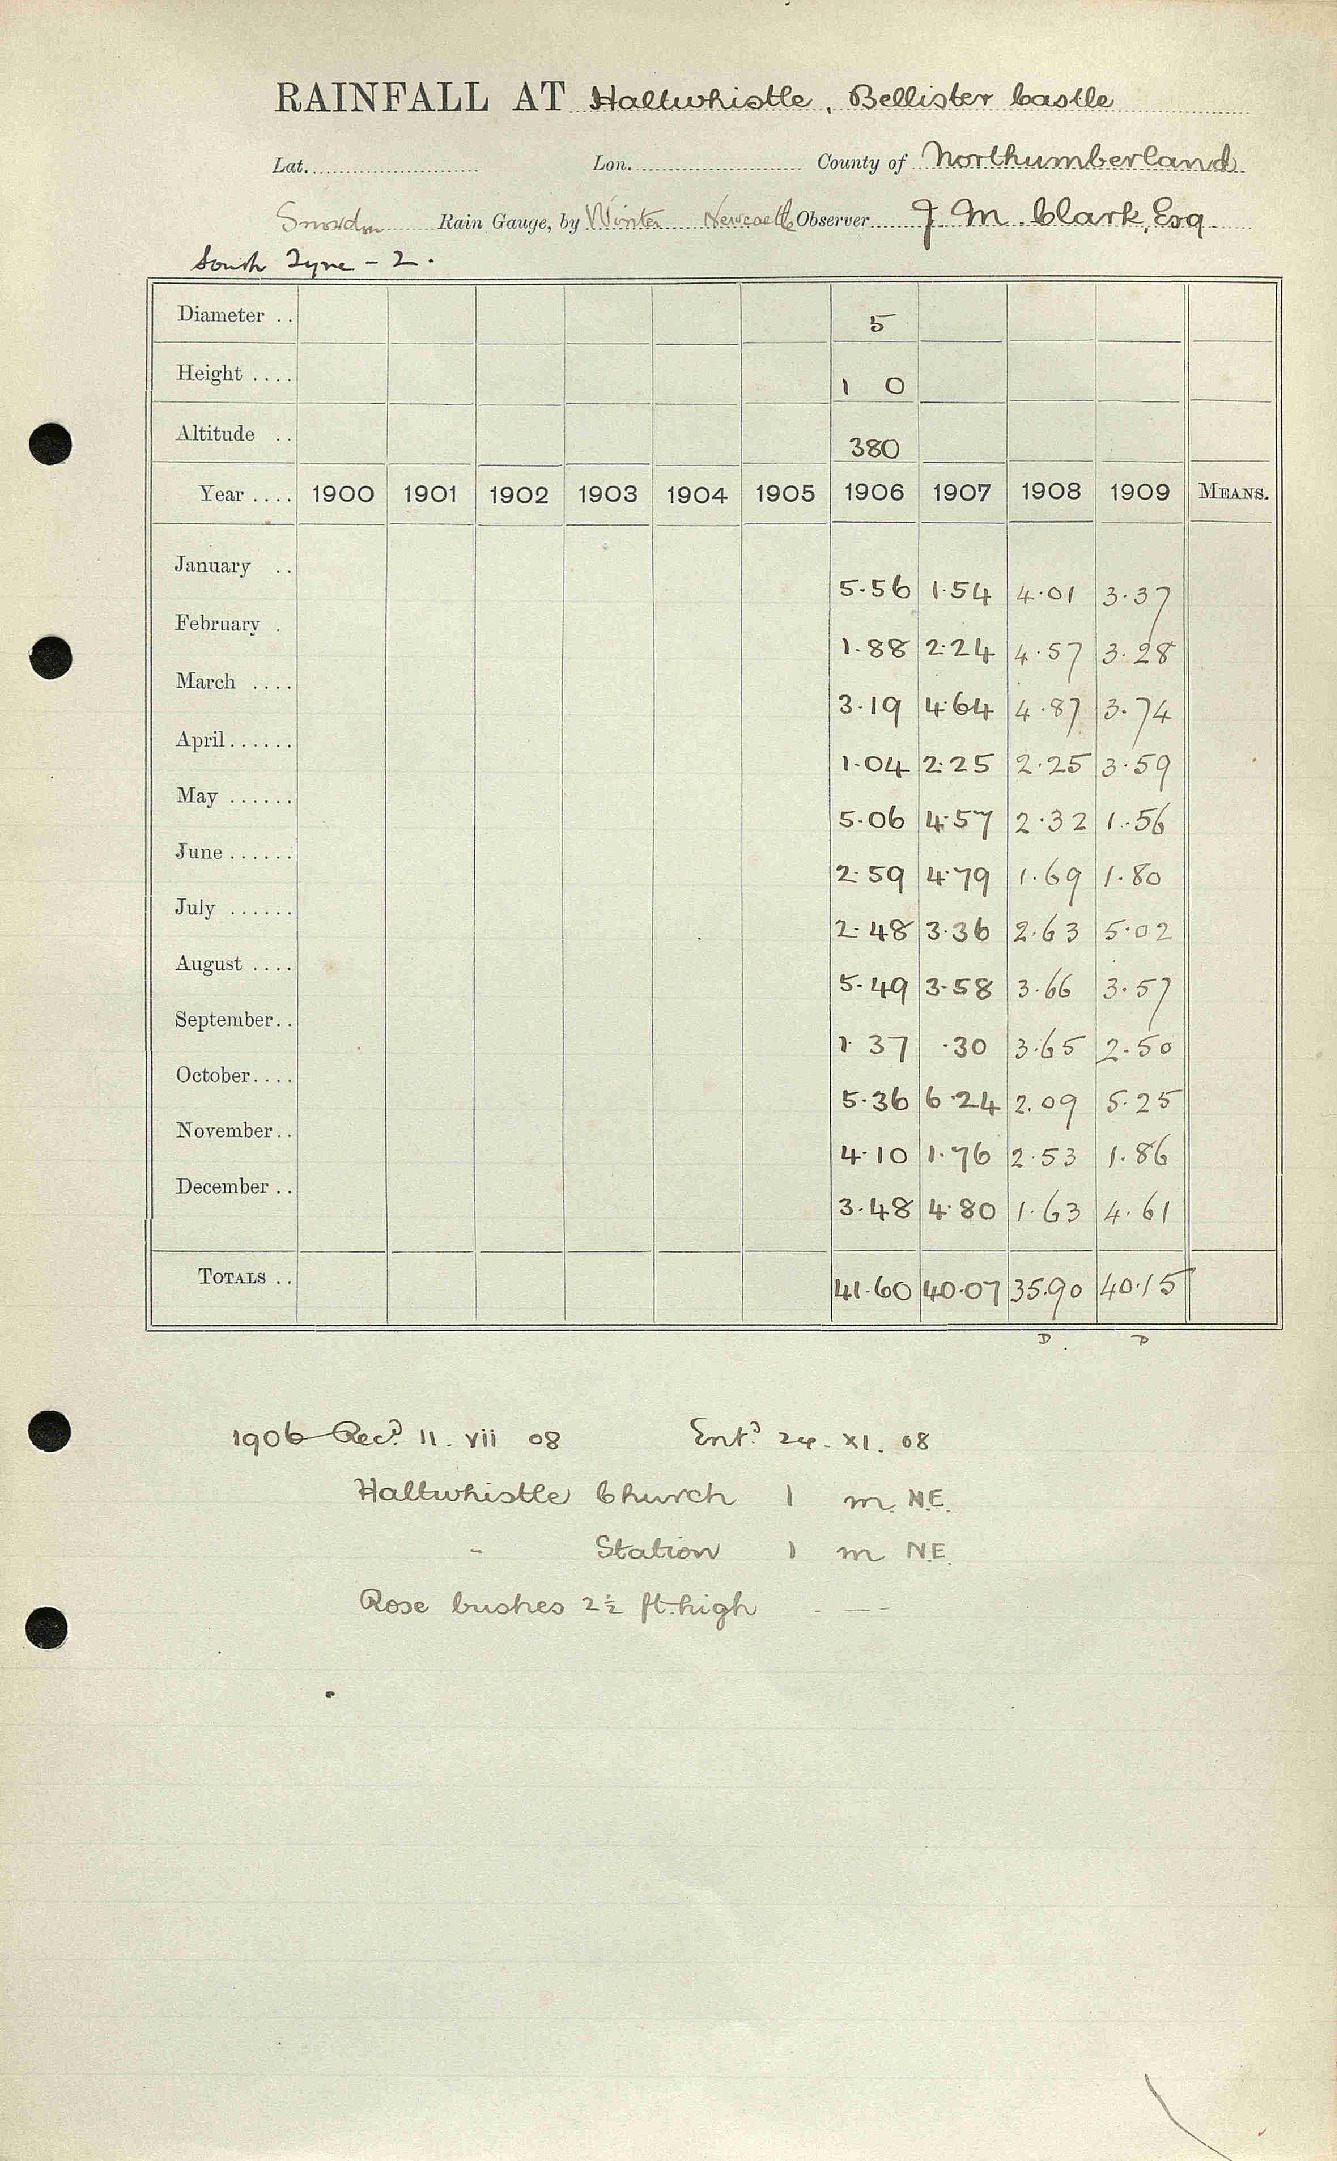 RAINFALL AT Haltwhistle, Bellister Castle
Lat. Lon. County of Northumberland
Snowdon Rain Gauge, by Winter Newcastle Observer J. M. Clark, Esq.
South Tyne - 2.
Diameter .. 5
Height .... 1 0
Altitude .. 380
Year .... 1900 1901 1902 1903 1904 1905 1906 1907 1908 1909 MEANS.
January .. 5.56 1.54 4.01 3.37
February . 1.88 2.24 4.57 3.28
March .... 3.19 4.64 4.87 3.74
April...... 1.04 2.25 2.25 3.59
May ...... 5.06 4.57 2.32 1.56
June...... 2.59 4.79 1.69 1.80
July ...... 2.48 3.36 2.63 5.02
August .... 5.49 3.58 3.66 3.57
September.. 1.37 .30 3.65 2.50
October.... 5.36 6.24 2.09 5.25
November.. 4.10 1.76 2.53 1.86
December .. 3.48 4.80 1.63 4.61
TOTALS .. 41.60 40.07 35.90 40.15
D. D
1906 Recd. 11. vii 08 Entd. 24. XI. 08
Haltwhistle Church 1 m. N.E.
" Station 1 m N.E.
Rose bushes 2½ ft. high - - -